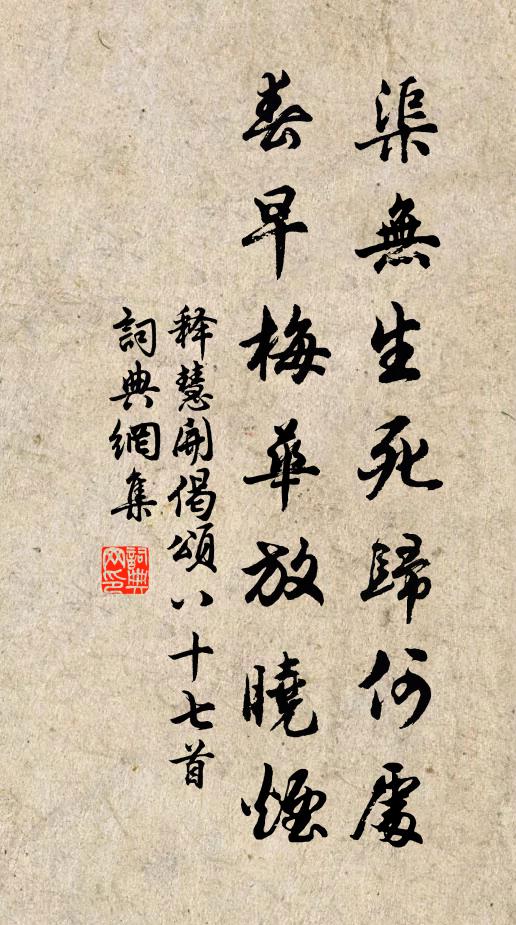 渠無生死歸何處
春早梅華放曉煙
释慧開偈頌八十七首
詞典網集
詞典網印